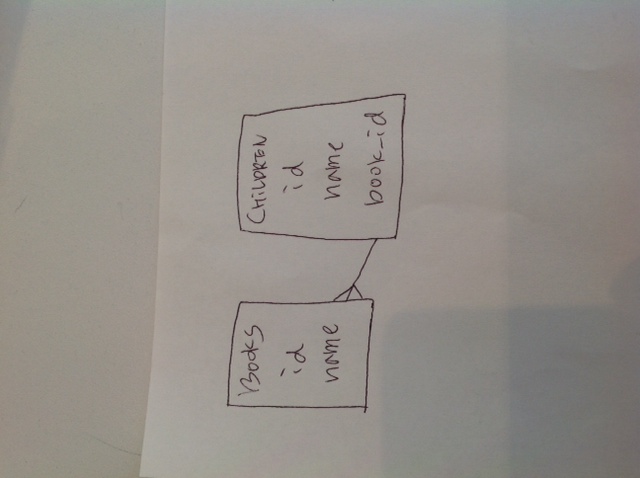 Books
id
name
CHILDREN
id
name
book_id